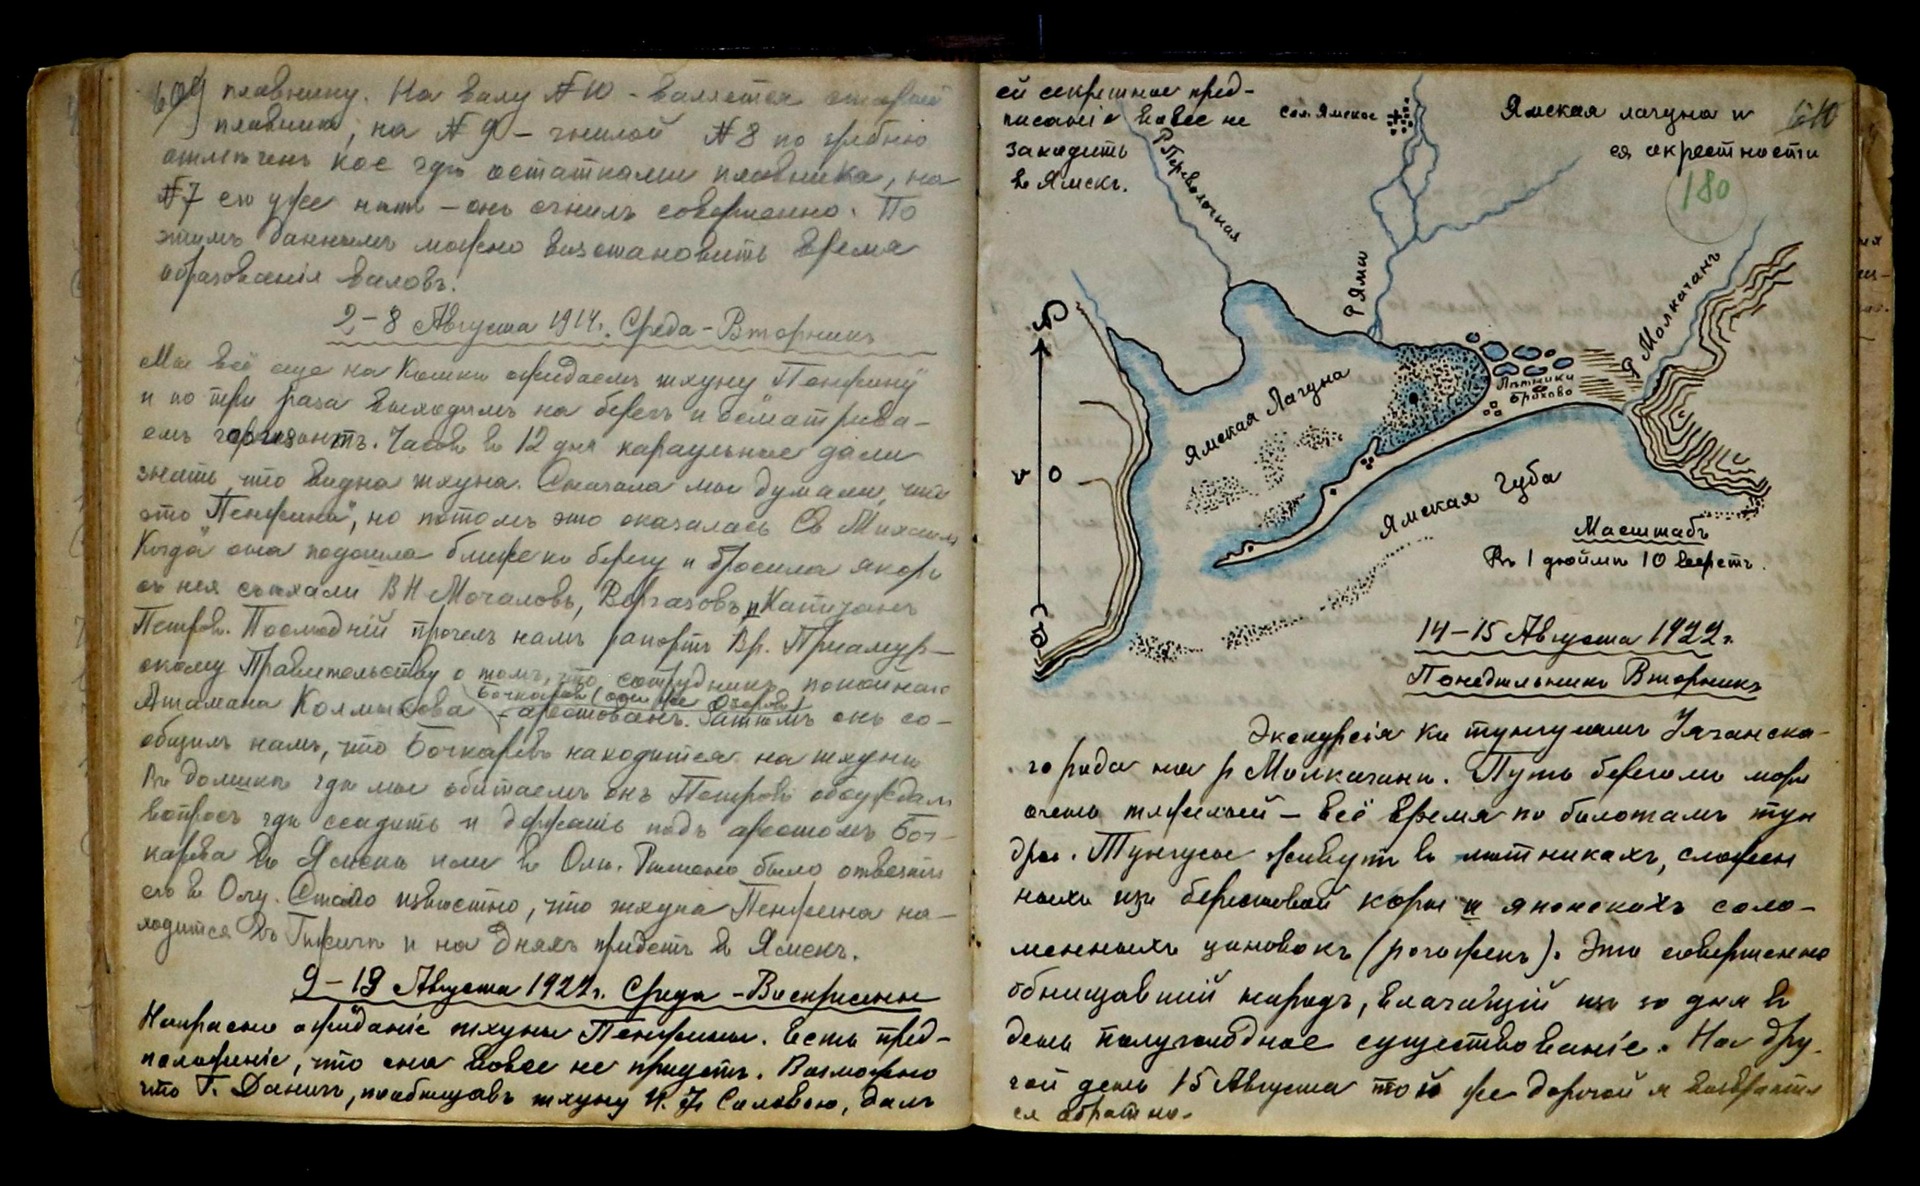 609
плавнику. На валу №10 - валяется старый
плавник, на №9 - гнилой №8 по гребню
отмѣченъ кое гдѣ остатками плавника, на
№7 его уже нѣтъ - онъ сгнилъ совершенно. По
этимъ даннымъ можно возстановить время
образованія валовъ.
2-8 Августа 1914г. Среда-Вторникъ
Мы всё еще на Кошкѣ ожидаемъ шхуну "Пенжину"
и по три раза выходимъ на берегъ и осматрива-
емъ горизонтъ. Часов въ 12 дня караульные дали
знать, что видна шхуна. Сначала мы думали, что
это "Пенжина", но потомъ это оказалась Св Михаилъ
Когда она подошла ближе къ берегу и бросила якорь
съ нея съѣхали В Н Мочаловъ, и Капитанъ
Петровъ. Последній прочелъ намъ рапортъ Вр. Приамур-
скому Правительству о томъ, что сотрудникъ покойнаго
Бочкаревъ (онъ же Озеровъ)
Атамана Колмыкова - арестованъ. Затѣмъ онъ со-
общилъ намъ, что Бочкаревъ находится на шхунѣ
Въ домикѣ гдѣ мы обитаемъ онъ Петровъ обсуждалъ
вопросъ гдѣ ссадить и держать подъ арестомъ Боч-
карева въ Ямскѣ или въ Олѣ. Рѣшено было отвезти
его в Олу. Стало извѣстно, что шхуна Пенжина на-
ходится въ Гижигѣ и на дняхъ придетъ въ Ямскъ.
9-13 Августа 1922г. Среда -Воскресенье
Напрасно ожиданіе шхуны Пенжины. Есть пред-
положеніе, что она вовсе не придетъ. Возможно
что Г. Данич, пообѣщавъ шхуну И. Ф Соловью, далъ
ей секретное пред-
писаніе вовсе не
заходить
в Ямскъ.
Сел. Ямское
Ямская лагуна и
ея окрестности
610
180
Р Переволочная
Р Яма
Р Молкачанъ
С
Ямская Лагуна
Лѣтники
Брохово
В
О
Ямская Губа
Масштабъ
Въ 1 дюймѣ 10 верстъ.
Ю
14-15 Августа 1922г.
Понедѣльникъ Вторникъ
Экскурсія къ тунгусамъ Уяганска-
го рода на р Молкачанъ. Путь берегомъ моря
очень тяжелый - всё время по болотамъ тун
дры. Тунгусы живутъ въ лѣтникахъ, сложен
ныхъ изъ березовой коры и японскихъ соло-
менныхъ циновокъ (рогожекъ). Это совершенно
обнищавшій народъ, влачащій изо дня въ
день полуголодное существованіе. На дру-
гой день 15 Августа той же дорогой я возвратил
ся обратно.